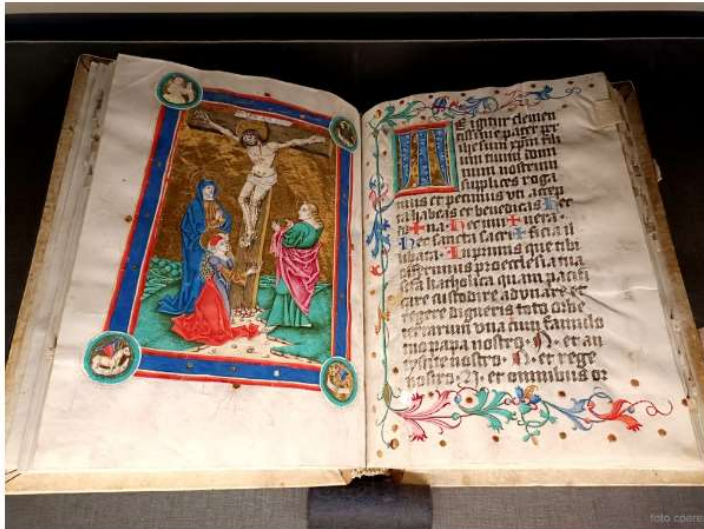 TE igitur clemen
tissime pater per
ihesum xpm fili
um tuum domi
num nostrum
supplices roga
mus et petimus uti accep
ta habeas et benedicas hec
do+na. Hec mu+nera.
hec sancta sacri+ficia il
libata. Inprimis que tibi
offerimus pro ecclesia tua
scta katholica quam pacifi
care custodire adunare et
regere digneris toto orbe
terrarum una cum famulo
tuo papa nostro .N. et an
tistite nostro .N. et rege
nostro .N. et omnibus or
foto